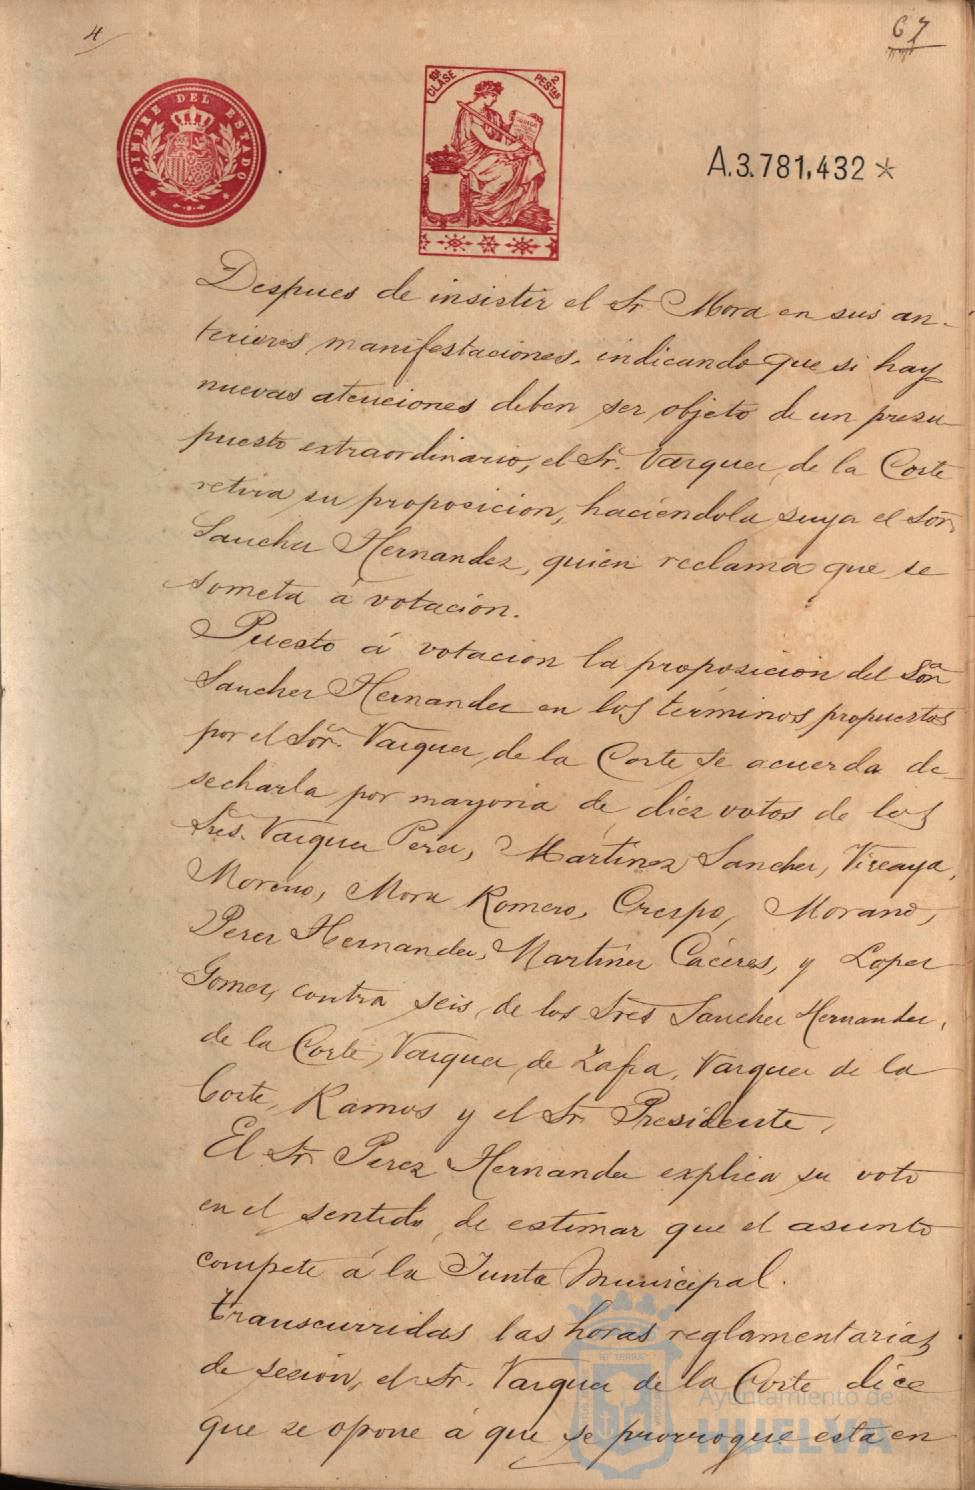 4
67
TIMBRE DEL ESTADO
10ª CLASE
2 PESTAS
A.3.781,432*
Despues de insistir el Sr Mora en sus an-
teriores manifestaciones, indicando que si hay
nuevas atenciones deben ser objeto de un presu-
puesto extraordinario, el Sr. Vazquez de la Corte
retira su proposicion, haciéndola suya el Sor.
Sanchez Hernandez, quien reclama que se
someta á votación.
Puesto á votacion la proposicion del Sor
Sanchez Hernandez en los términos propuestos
por el Sor. Vazquez de la Corte se acuerda de-
secharla por mayoria de diez votos de los
Sres. Vazquez Perez, Martinez Sanchez, Vizcaya,
Moreno, Mora Romero, Crespo, Morano,
Perez Hernandez, Martinez Cáceres, y Lopez
Gomez, contra seis de los Sres Sanchez Hernandez,
de la Corte, Vazquez de Zafra, Vazquez de la
Corte, Ramos y el Sr. Presidente.
El Sr. Perez Hernandez explica su voto
en el sentido de estimar que el asunto
compete á la Junta Municipal.
Transcurridas las horas reglamentarias
de sesión, el Sr. Vazquez de la Corte dice
que se opone á que se prorrogue esta en
Ayuntamiento de
HUELVA